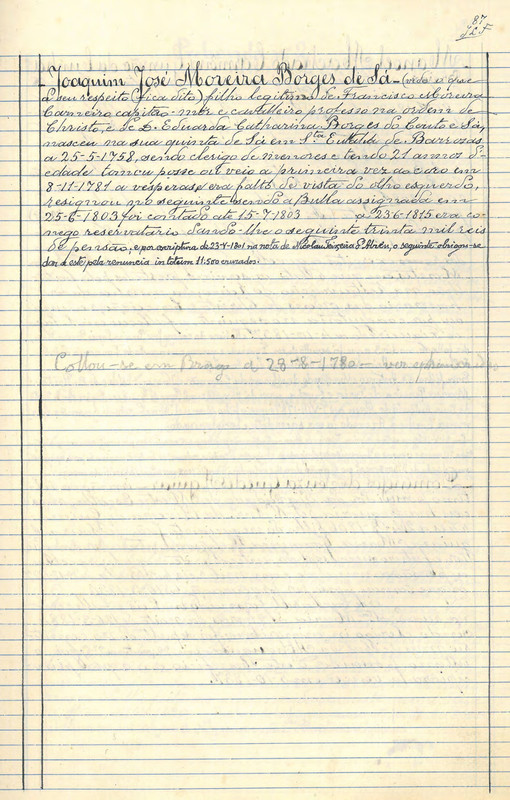 87
Joaquim José Moreira Borges de Sá - (vide o que
a seu respeito fica dito) filho legitimo de Francisco Moreira
Carneiro capitão-mór e cavalleiro professo na ordem de
Christo, e de D. Eduarda Catharina Borges do Couto e Sá,
nasceu na sua quinta de Sá em Sta Eulalia de Barrosas
a 25-5-1758, sendo clerigo de menores e tendo 21 annos d'
edade tomou posse ou veio a primeira vez ao coro em
8-11-1781 a vesperas e era falto de vista do olho esquerdo,
resignou no seguinte sendo a Bulla assignada em
25-6-1803 foi contado até 15-7-1803 a 23-6-1815 era co-
nego reservatario dando-lhe o seguinte trinta mil reis
de pensão, e por escriptura de 23-7-1801 na nota de Nicolau Teixeira d'Abreu, o seguinte obrigou-se
dar a este pela renuncia in totum 11.500 cruzados.
Collou-se em Braga a 28-8-1780 - ver